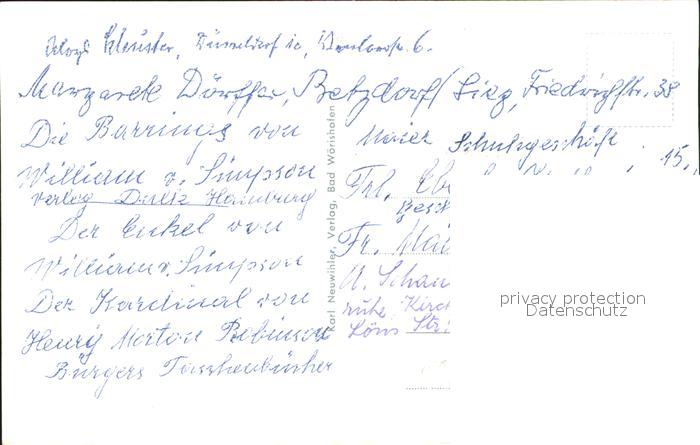 Düsseldorf 10, 6.
Margarete Dörffer, Betzdorf/Sieg, Friedrichstr. 38
Die Barrings von
William v. Simpson
Verlag Hamburg
Der Enkel von
William v. Simpson
Der Kardinal von
Henry Morton Robinson
Bürgers Taschenbücher
Karl Neuwihler, Verlag, Bad Wörishofen
Maier Schuhgeschäft
15,
Frl.
Fr. Mai
U. Schau
ruhe Kirch
Löns Str.
privacy protection
Datenschutz